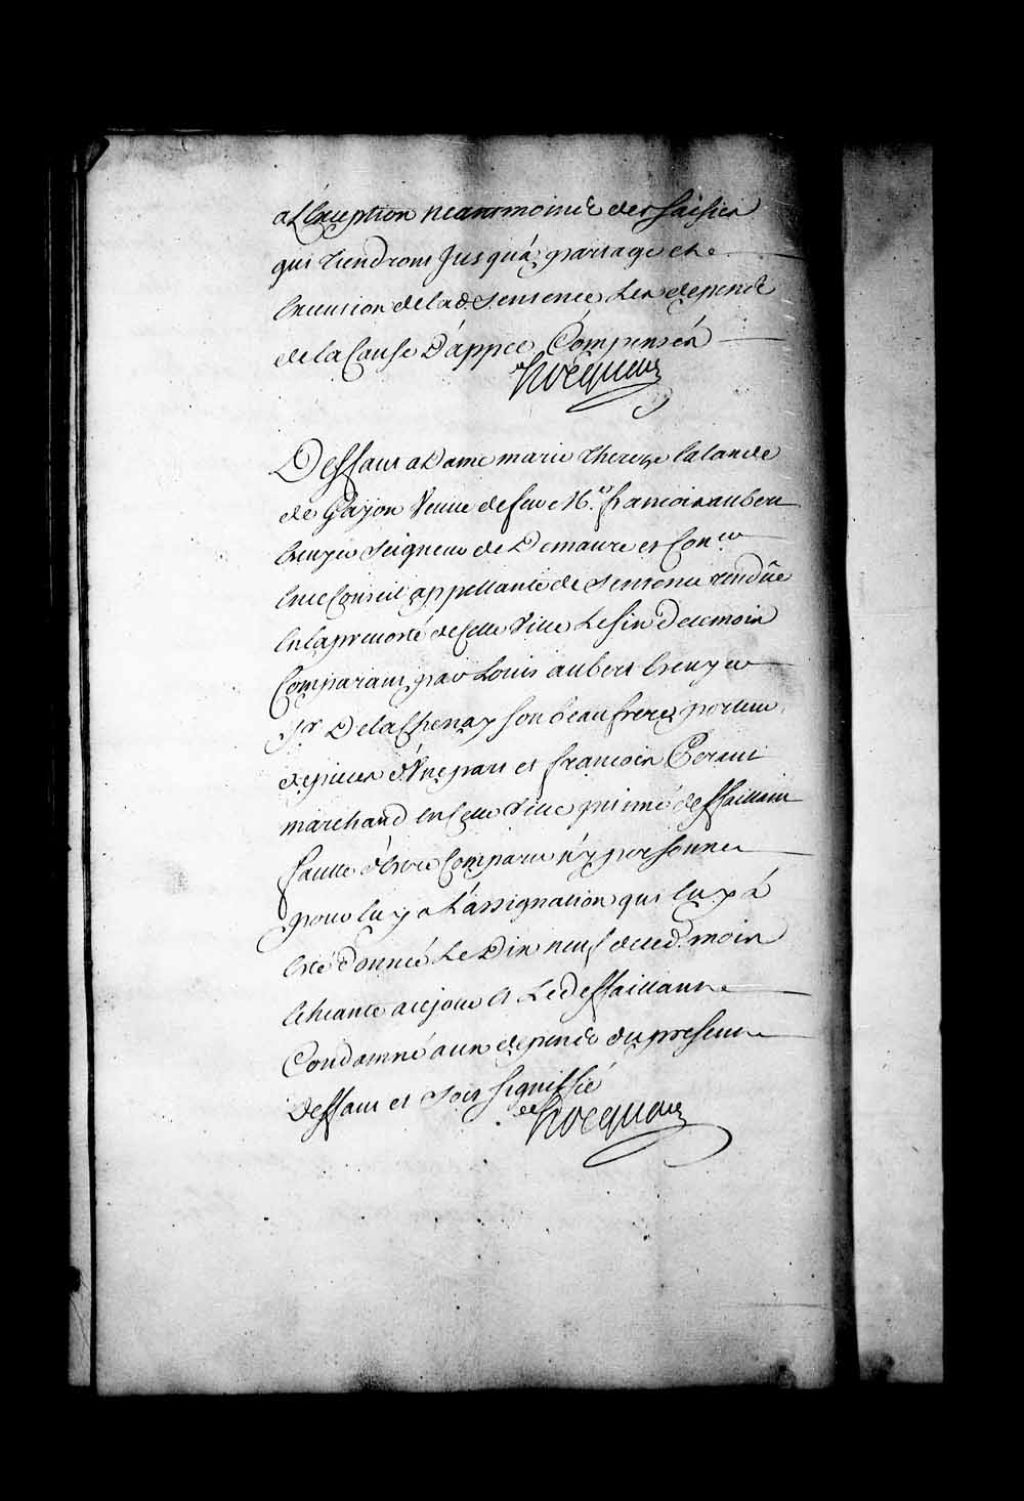 a L'Exception neantmoins des saisies
qui tiendront Jusqu'a partage et
Execution de lad. sentence Les depends
de la Cause D'appel Compensés
hocquart
Deffaut a Dame marie therese Lalande
de Gayon Veuve de feu Me. francois aubert
Ecuyer seigneur de Demaure et Coner
En ce Conseil appellante de sentence rendüe
En la prevosté de Cette Ville Le six De ce mois
Comparant par Louis aubert Ecuyer
Sr. De la Chenay son beaufrere porteur
de pieces d'Une part et francois Perault
marchand En Cette Ville Intimé deffaillant
faute d'Estre Comparu n'y personne
pour luy a L'assignation qui luy á
Esté donnée Le Dix neuf de ced. mois
Echeante a ce jour Et Le deffaillant
Condamné aux depends du present
Deffaut et soit signiffié
hocquart